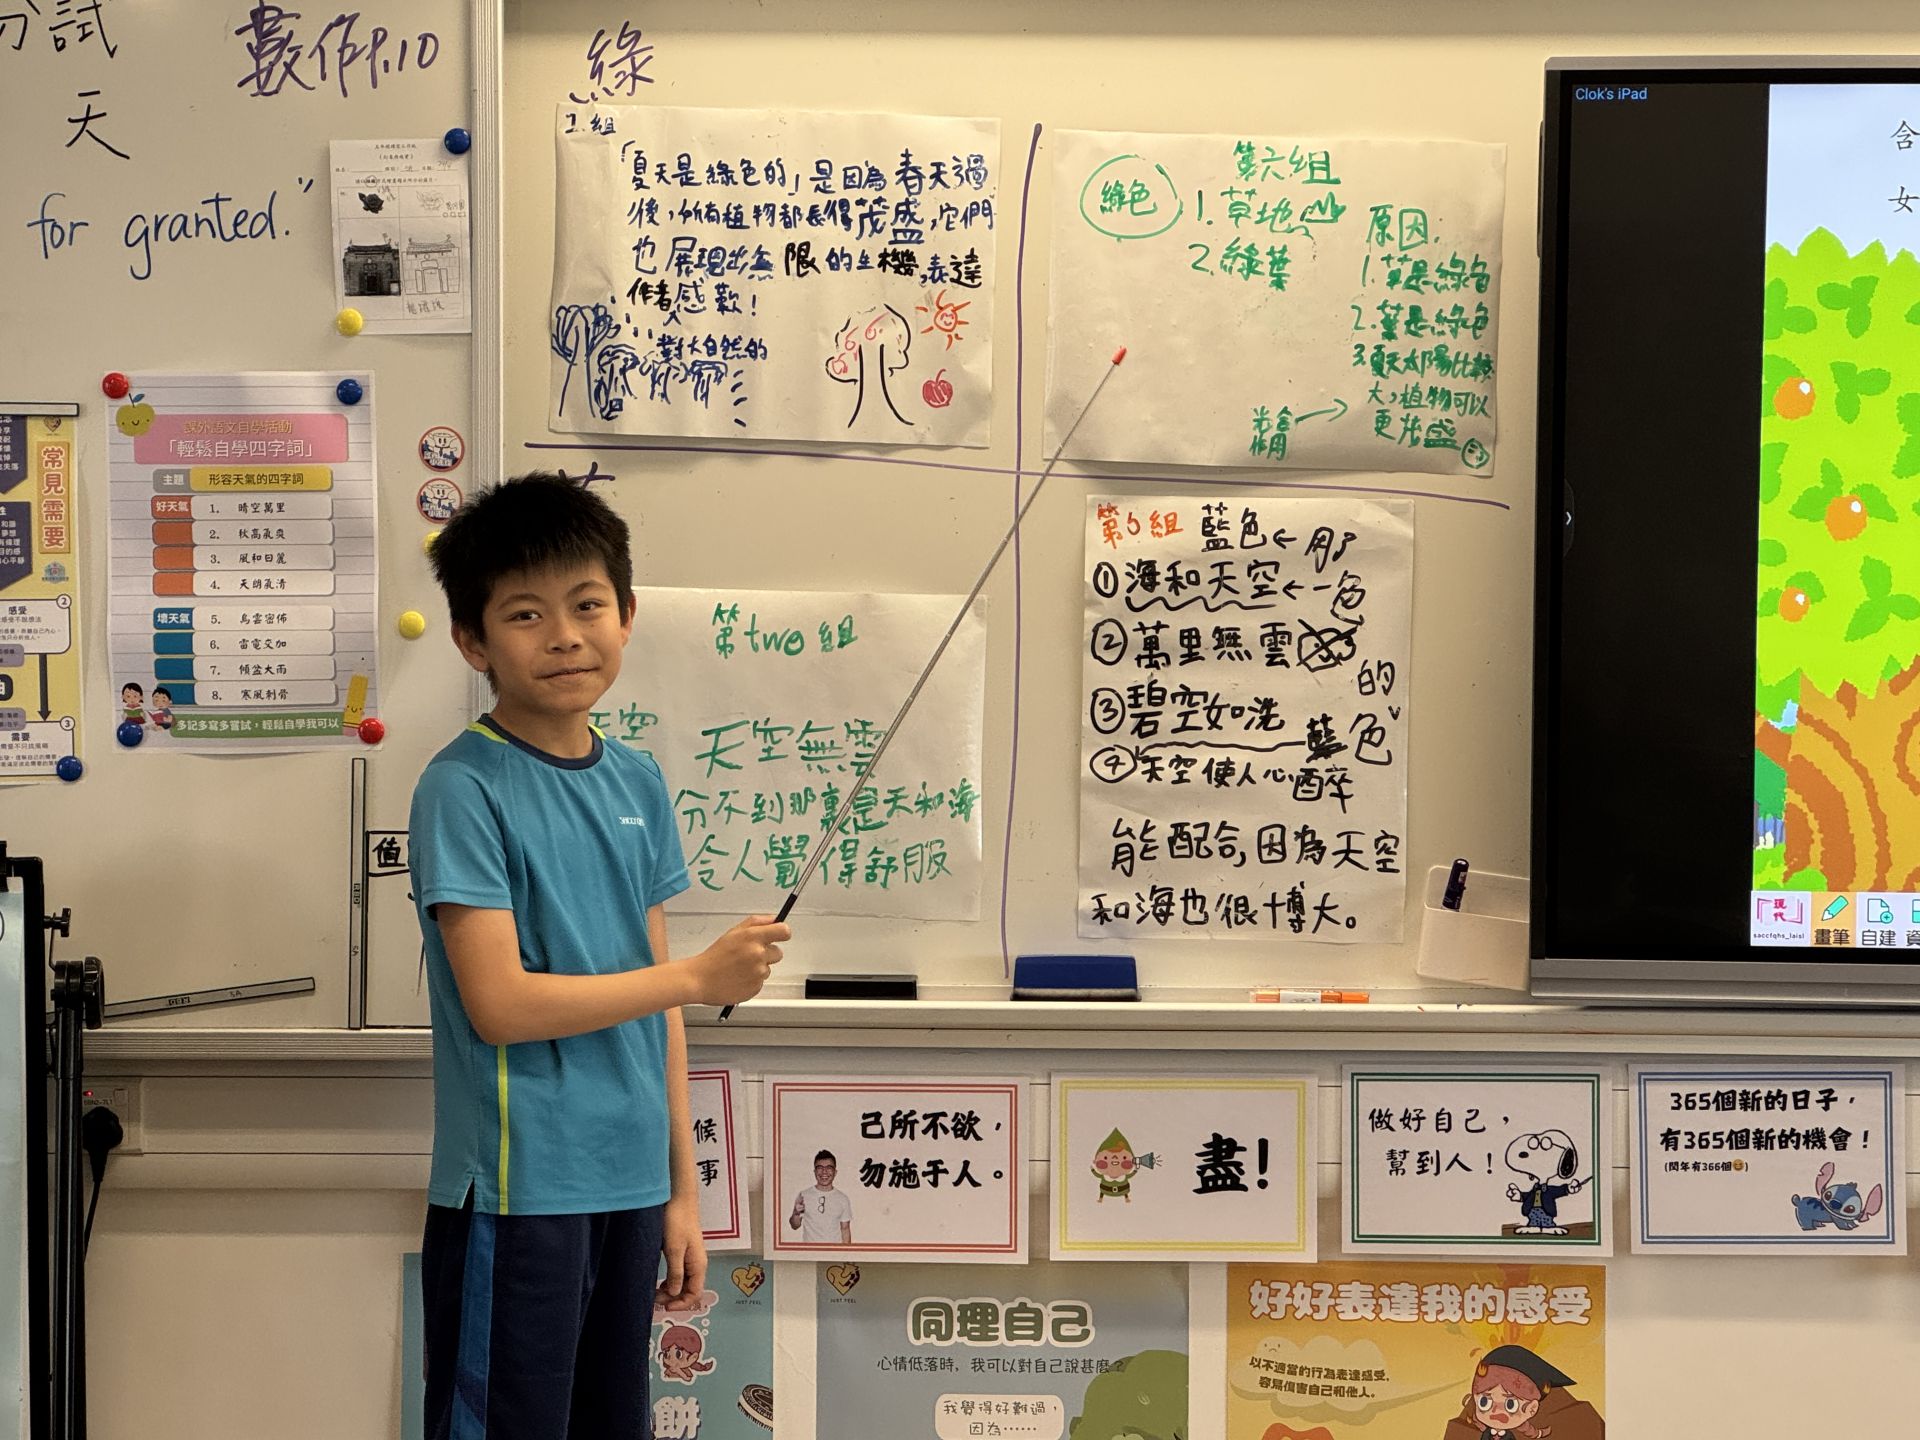 分試
天
for granted."
數作P.10
綠
課外語文自學活動
「輕鬆自學四字詞」
主題 形容天氣的四字詞
好天氣 1. 晴空萬里
2. 秋高氣爽
3. 風和日麗
4. 天朗氣清
壞天氣 5. 烏雲密佈
6. 雷電交加
7. 傾盆大雨
8. 寒風刺骨
多記多寫多嘗試，輕鬆自學我可以
常見需要
感受
需要
值
1.組
「夏天是綠色的」是因為春天過
後，所有植物都長得茂盛，它們
也展現出無限的生機，表達
作者感歎！
對大自然的
第六組
綠色
1. 草地
2. 綠葉
原因
1. 草是綠色
2. 葉是綠色
3. 夏天太陽比較
大，植物可以
更茂盛
光合作用
第two組
天空無雲
分不到那裏是天和海
令人覺得舒服
第5組 藍色←用了
①海和天空←一色
②萬里無雲
的
③碧空如洗
藍色
④天空使人心醉
能配合，因為天空
和海也很博大。
Clok's iPad
含
女
現代
saccfqhs_laisl
畫筆
自建
候
事
己所不欲，
勿施于人。
盡！
做好自己，
幫到人！
365個新的日子，
有365個新的機會！
(閏年有366個😊)
餅
JUST FEEL
JUST FEEL
同理自己
心情低落時，我可以對自己說甚麼？
我覺得好難過，
因為……
好好表達我的感受
以不適當的行為表達感受，
容易傷害自己和他人。